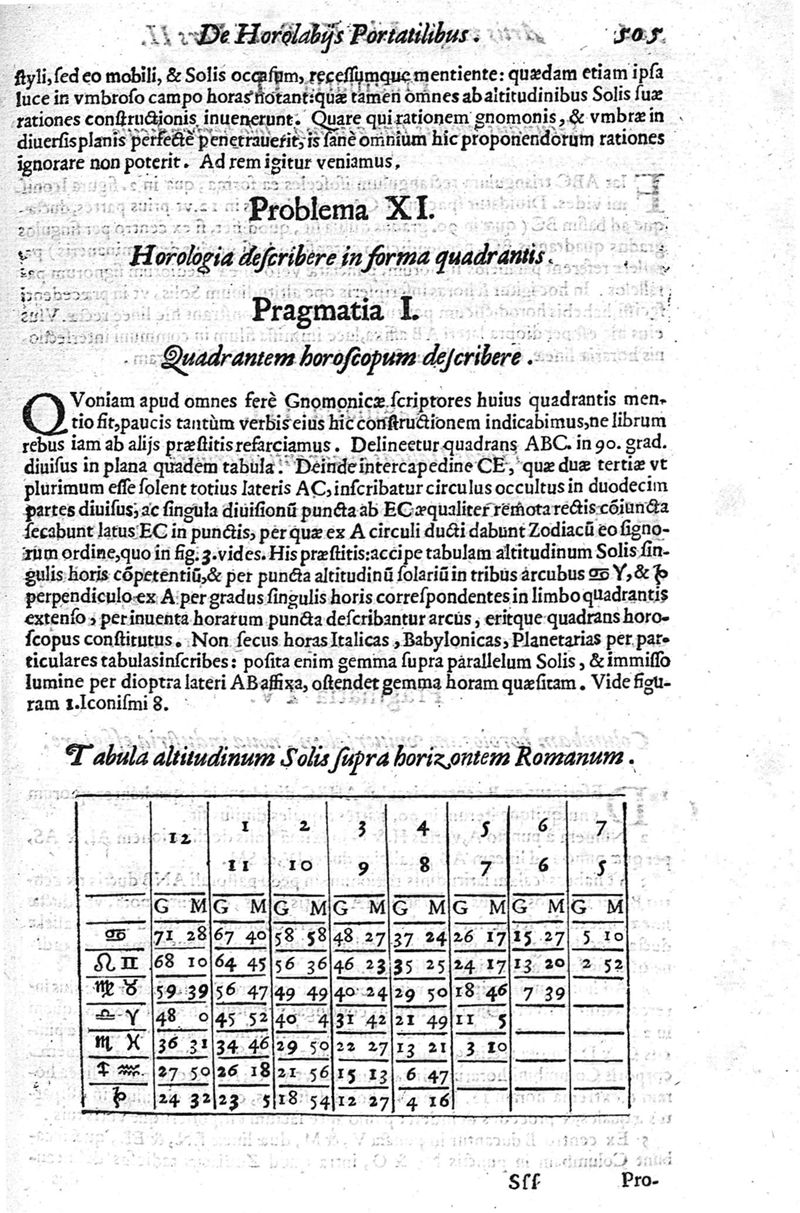 De Horolabijs Portatilibus. 505
ſtyli, ſed eo mobili, & Solis occaſum, receſſumque mentiente: quædam etiam ipſa
luce in vmbroſo campo horas notant: quæ tamen omnes ab altitudinibus Solis ſuæ
rationes conſtructionis inuenerunt. Quare qui rationem gnomonis, & vmbræ in
diuerſis planis perfectè penetrauerit, is ſanè omnium hic proponendorum rationes
ignorare non poterit. Ad rem igitur veniamus.
Problema XI.
Horologia deſcribere in forma quadrantis.
Pragmatia I.
Quadrantem horoſcopum deſcribere.
QVoniam apud omnes ferè Gnomonicæ ſcriptores huius quadrantis men-
tio fit, paucis tantùm verbis eius hic conſtructionem indicabimus, ne librum
rebus iam ab alijs præſtitis refarciamus. Delineetur quadrans ABC. in 90. grad.
diuiſus in plana quadem tabula. Deinde intercapedine CE, quæ duæ tertiæ vt
plurimum eſſe ſolent totius lateris AC, inſcribatur circulus occultus in duodecim
partes diuiſus, ac ſingula diuiſionũ puncta ab EC æqualiter remota rectis cõiuncta
ſecabunt latus EC in punctis, per quæ ex A circuli ducti dabunt Zodiacũ eo ſigno-
rum ordine, quo in fig. 3. vides. His præſtitis: accipe tabulam altitudinum Solis ſin-
gulis horis cõpetentiũ, & per puncta altitudinũ ſolariũ in tribus arcubus ♋ ♈, & ♑
perpendiculo ex A per gradus ſingulis horis correſpondentes in limbo quadrantis
extenſo, per inuenta horarum puncta deſcribantur arcus, eritque quadrans horo-
ſcopus conſtitutus. Non ſecus horas Italicas, Babylonicas, Planetarias per par-
ticulares tabulas inſcribes: poſita enim gemma ſupra parallelum Solis, & immiſſo
lumine per dioptra lateri AB affixa, oſtendet gemma horam quæſitam. Vide figu-
ram 1. Iconiſmi 8.
Tabula altitudinum Solis ſupra horizontem Romanum.
12 1 2 3 4 5 6 7
11 10 9 8 7 6 5
G M G M G M G M G M G M G M G M
♋ 71 28 67 40 58 58 48 27 37 24 26 17 15 27 5 10
♌ ♊ 68 10 64 45 56 36 46 23 35 25 24 17 13 20 2 52
♍ ♉ 59 39 56 47 49 49 40 24 29 50 18 46 7 39
♎ ♈ 48 0 45 52 40 4 31 42 21 49 11 5
♏ ♓ 36 31 34 46 29 50 22 27 13 21 3 10
♐ ♒ 27 50 26 18 21 56 15 13 6 47
♑ 24 32 23 5 18 54 12 27 4 16
Sſſ Pro-